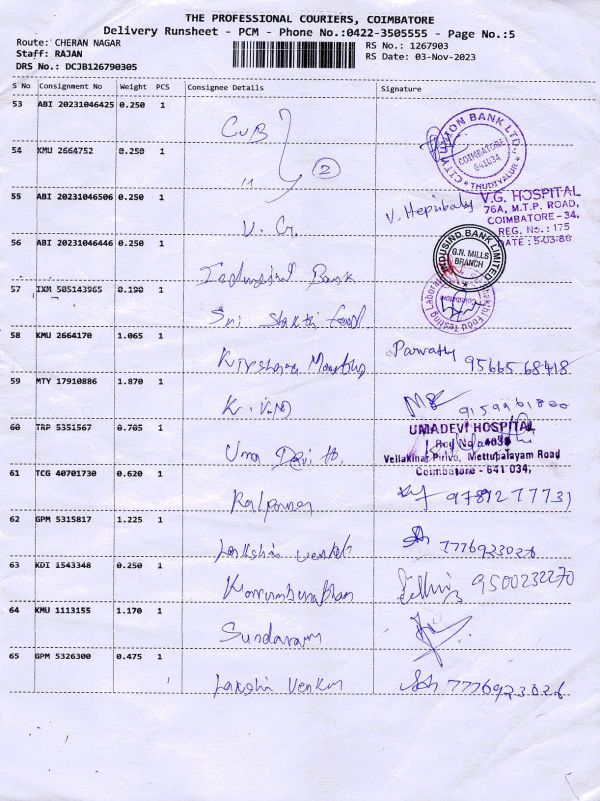 THE PROFESSIONAL COURIERS, COIMBATORE
Delivery Runsheet - PCM - Phone No.:0422-3505555 - Page No.:5
Route: CHERAN NAGAR
Staff: RAJAN
DRS No.: DCJB126790305
RS No.: 1267903
RS Date: 03-Nov-2023
S No Consignment No Weight PCS Consignee Details Signature
53 ABI 20231046425 0.250 1
CUB
CITY UNION BANK LTD.,
COIMBATORE
641034
* THUDIYALUR *
54 KMU 2664752 0.250 1
" 2
55 ABI 20231046506 0.250 1
V. G.
V. Hepzibah
V.G. HOSPITAL
76A, M.T.P. ROAD,
COIMBATORE-34.
REG. No.: 175
DATE: 5-03-86
56 ABI 20231046446 0.250 1
Indusind Bank
INDUSIND BANK LIMITED
G.N. MILLS
BRANCH
57 IXM 505143965 0.190 1
Sri Shakthi food
Sakthi Food Testing Laboratory
58 KMU 2664170 1.065 1
Parvathy 9566568418
59 MTY 17910886 1.870 1
K.V.M
9159961800
60 TRP 5351567 0.705 1
Uma Devi H
UMADEVI HOSPITAL
Reg No 4039
Vellakinar Pirivu, Mettupalayam Road
Coimbatore - 641 034,
61 TCG 40701730 0.620 1
Kalpana
9789277731
62 GPM 5315817 1.225 1
Lakshmi Venkat
7776923026
63 KDI 1543348 0.250 1
9500232270
64 KMU 1113155 1.170 1
Sundaram
65 GPM 5326300 0.475 1
Lakshmi Venkat
7776923026